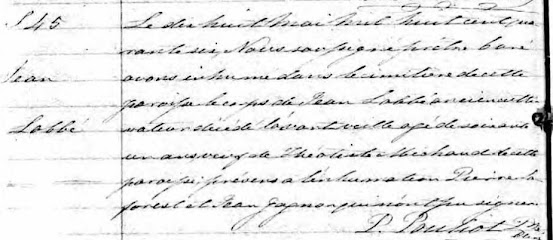 S 45 Le dix huit Mai mil huit cent qua
rante six, Nous soussigné prêtre curé
Jean avons inhumé dans le cimetière de cette
paroisse le corps de Jean Labbé ancien culti
Labbé vateur décédé l'avant veille agé de soixante
un ans veuf de Théotiste Michaud de cette
paroisse présens à l'inhumation Pierre
forest et Jean Gagnon qui n'ont pu signer
P. Pouliot Ptre